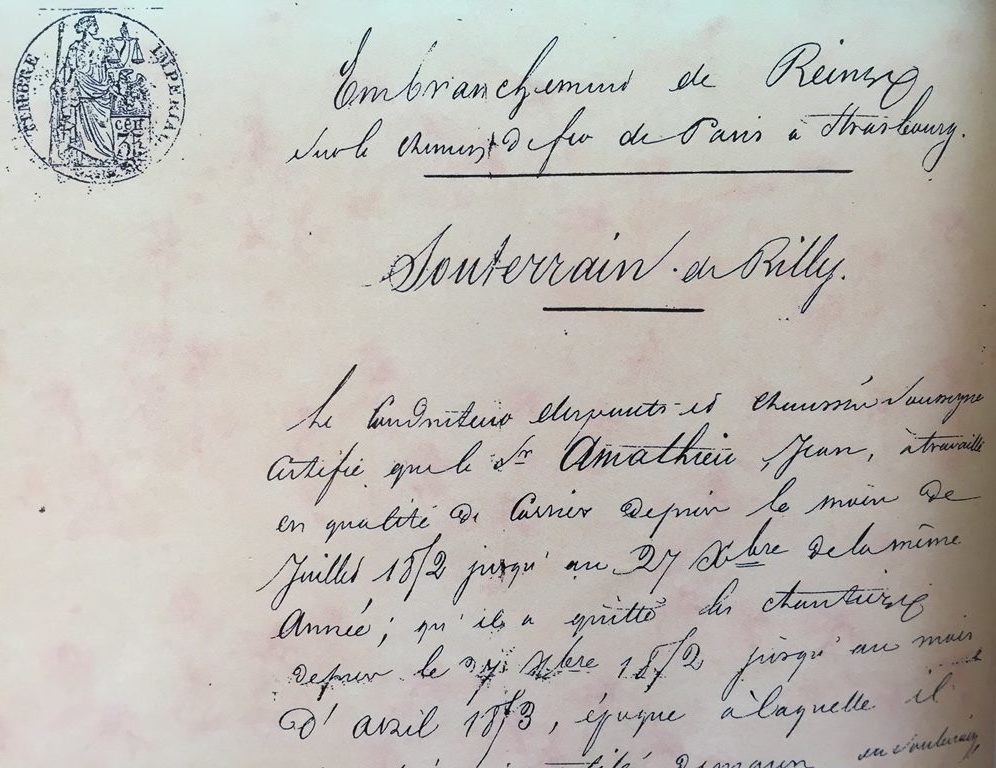 TIMBRE IMPERIAL
Embranchement de Reims
sur le chemin de fer de Paris à Strasbourg.
Souterrain de Rilly.
Le Conducteur des ponts et chaussées soussigné
certifie que le Sr Amathieu Jean, à travaillé
en qualité de Carrier depuis le mois de
Juillet 1852 jusqu'au 27 Xbre de la même
Année; qu'il a quitté les chantiers
depuis le 27 Xbre 1852 jusqu'au mois
D'avril 1853, époque à laquelle il